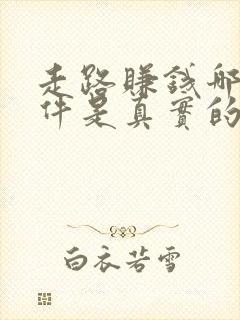 走路賺錢哪
件是真實的
白衣若雪